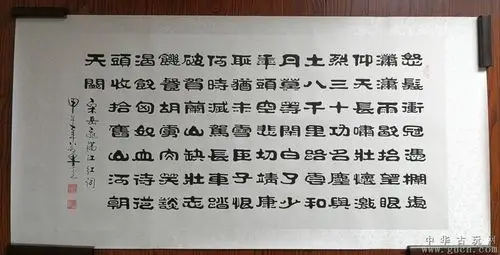 怒髮衝冠憑闌處
瀟瀟雨歇抬望眼
仰天長嘯壯懷激
烈三十功名塵與
土八千里路雲和
月莫等閒白了少
年頭空悲切靖康
恥猶未雪臣子恨
何時滅駕長車踏
破賀蘭山缺壯志
饑餐胡虜肉笑談
渴飲匈奴血待從
頭收拾舊山河朝
天闕
宋岳飛滿江紅詞
甲午年
www.gucn.com